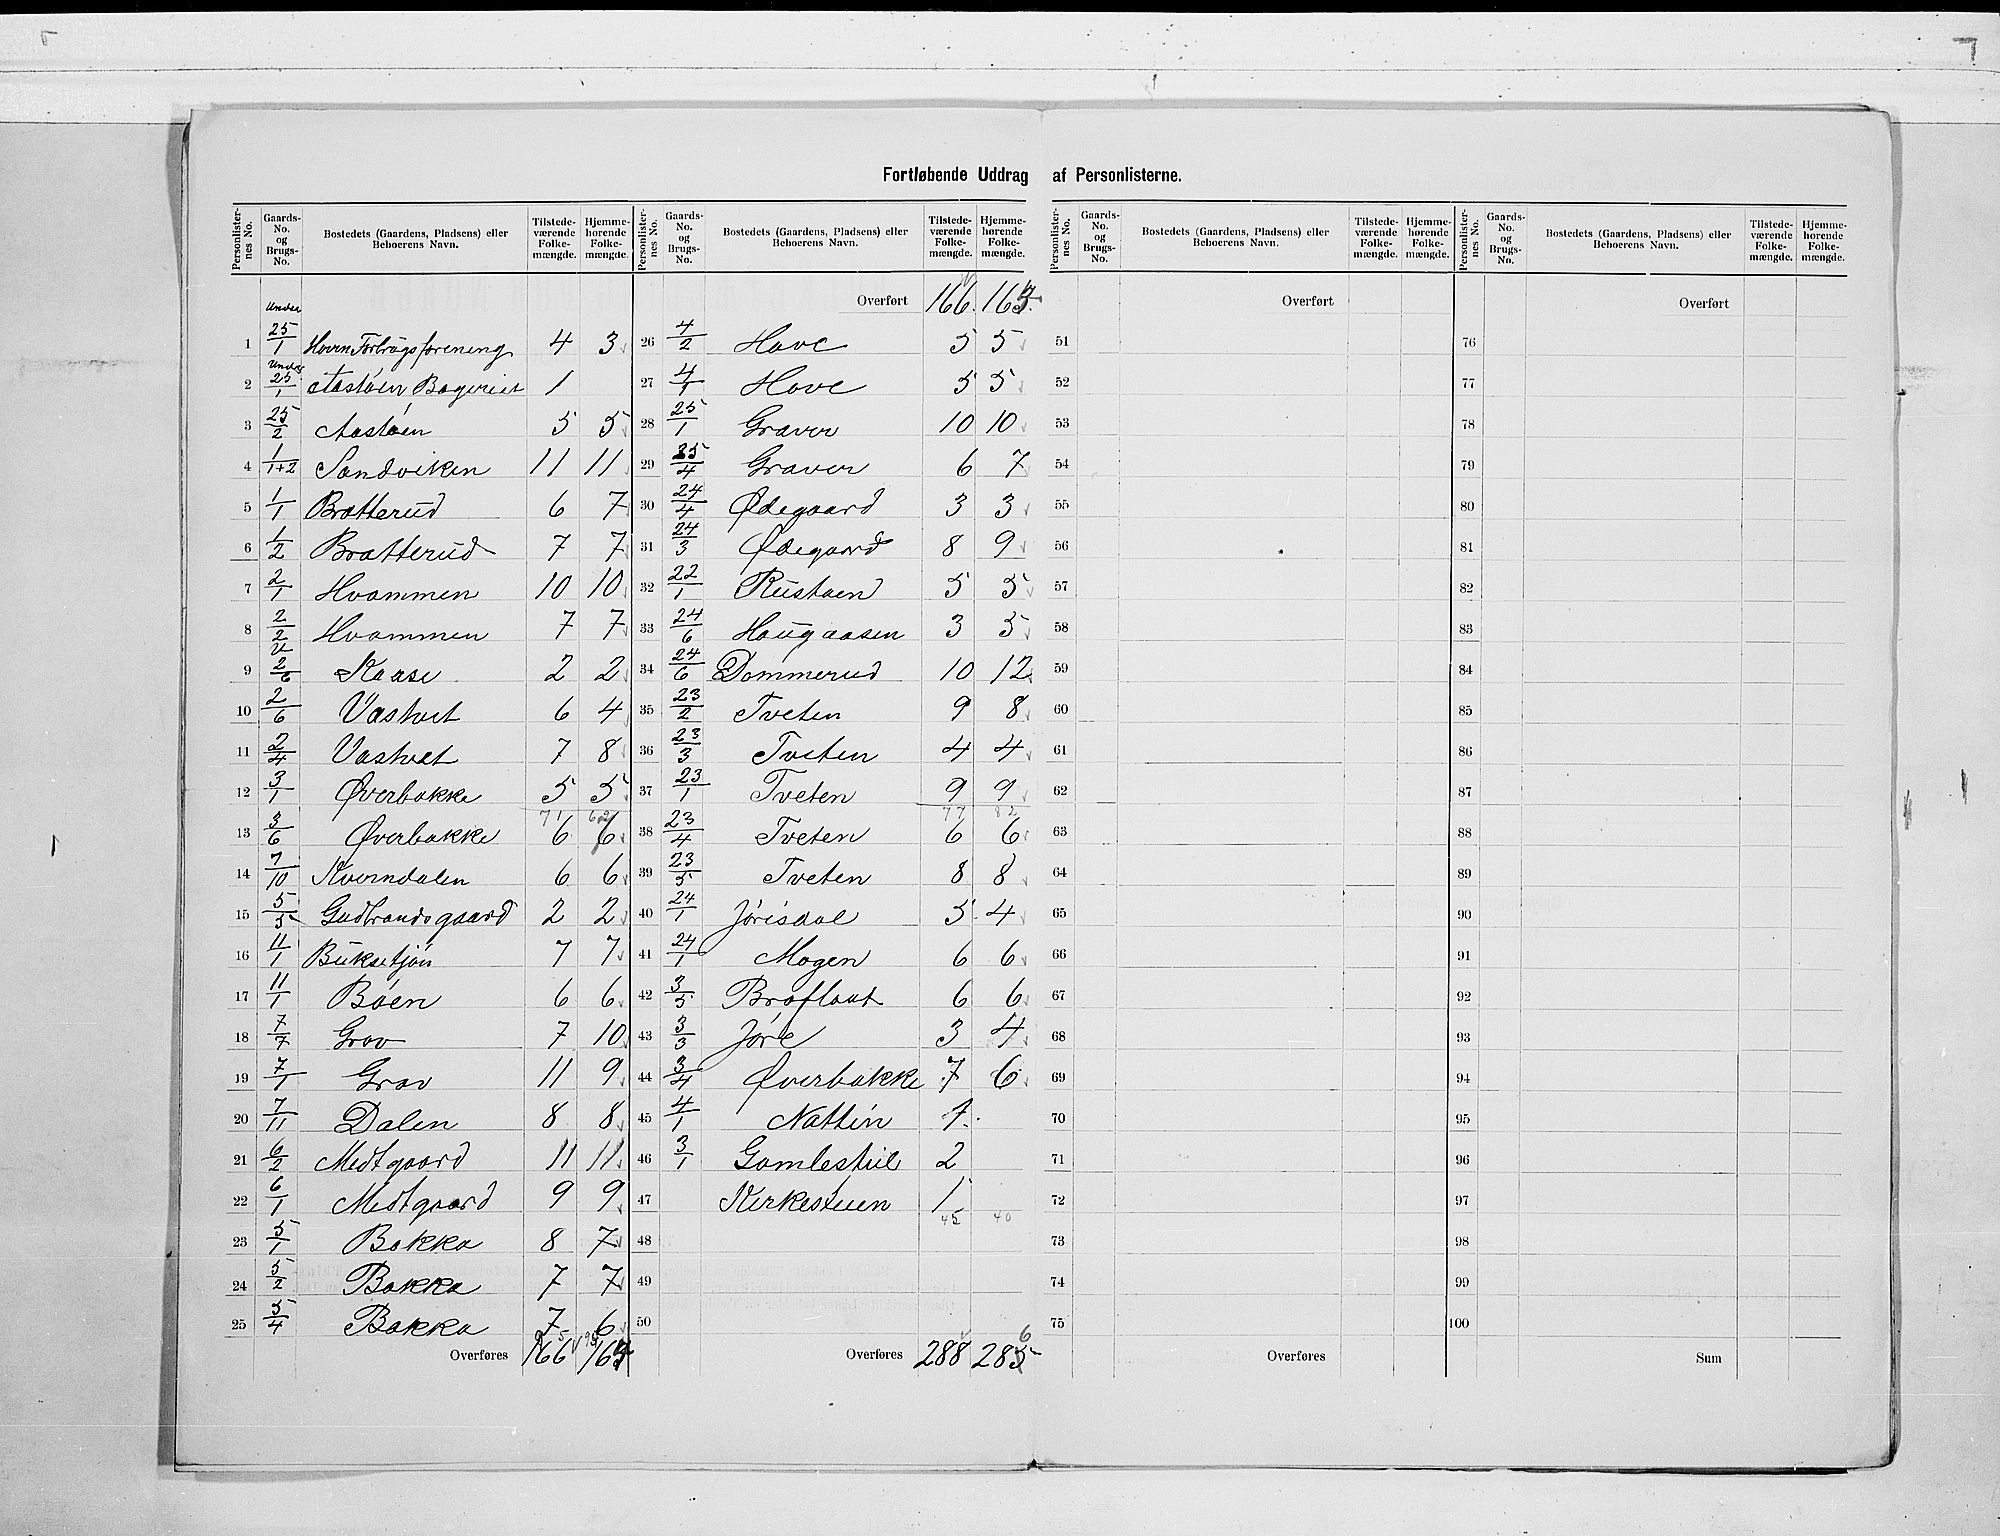 Fortløbende Uddrag af Personlisterne.
Personlister-nes No. | Gaards-No. og Brugs-No. | Bostedets (Gaardens, Pladsens) eller Beboerens Navn. | Tilstede-værende Folke-mængde. | Hjemme-hørende Folke-mængde.
Personlister-nes No. | Gaards-No. og Brugs-No. | Bostedets (Gaardens, Pladsens) eller Beboerens Navn. | Tilstede-værende Folke-mængde. | Hjemme-hørende Folke-mængde.
Personlister-nes No. | Gaards-No. og Brugs-No. | Bostedets (Gaardens, Pladsens) eller Beboerens Navn. | Tilstede-værende Folke-mængde. | Hjemme-hørende Folke-mængde.
Personlister-nes No. | Gaards-No. og Brugs-No. | Bostedets (Gaardens, Pladsens) eller Beboerens Navn. | Tilstede-værende Folke-mængde. | Hjemme-hørende Folke-mængde.
1 Under 25/1 4 3
2 Under 25/1 Aastøen Bageriet 1
3 25/2 Aastøen 5 5
4 1/1+2 Sandviken 11 11
5 1/1 Bratterud 6 7
6 1/2 Bratterud 7 7
7 2/1 Hvammen 10 10
8 2/2 Hvammen 7 7
9 2/6 Kaase 2 2
10 2/6 Vastvet 6 4
11 2/4 Vastvet 7 8
12 3/1 Øverbakke 5 5
71
13 3/6 Øverbakke 6 6
14 7/10 Kverndalen 6 6
15 5/5 Gudbrandsgaard 2 2
16 11/1 Buksetjøn 7 7
17 11/1 Bøen 6 6
18 7/7 Grav 7 10
19 7/1 Grav 11 9
20 7/11 Dalen 8 8
21 6/2 Midtgaard 11 11
22 6/1 Midtgaard 9 9
23 5/1 Bakka 8 7
24 5/2 Bakka 7 7
25 5/4 Bakka 7 6
Overføres 166
Overført 166
26 4/2 Hove 5 5
27 4/1 Hove 5 5
28 25/1 Graver 10 10
29 25/4 Graver 6 7
30 24/4 Ødegaard 3 3
31 24/3 Ødegaard 8 9
32 22/1 Rustaen 5 5
33 24/6 Haugaasen 3 5
34 24/6 Dommerud 10 12
35 23/2 Tveten 9 8
36 23/3 Tveten 4 4
37 23/1 Tveten 9 9
77 82
38 23/4 Tveten 6 6
39 23/5 Tveten 8 8
40 24/1 Jørisdal 5 4
41 24/1 Mogen 6 6
42 3/5 Braflaat 6 6
43 3/3 Jøre 3 4
44 3/4 Øverbakke 7 6
45 4/1 1
46 3/1 Gamlestul 2
47 Kirkestuen 1
45 40
48
49
50
Overføres 288 285 6
Overført
51
52
53
54
55
56
57
58
59
60
61
62
63
64
65
66
67
68
69
70
71
72
73
74
75
Overføres
Overført
76
77
78
79
80
81
82
83
84
85
86
87
88
89
90
91
92
93
94
95
96
97
98
99
100
Sum